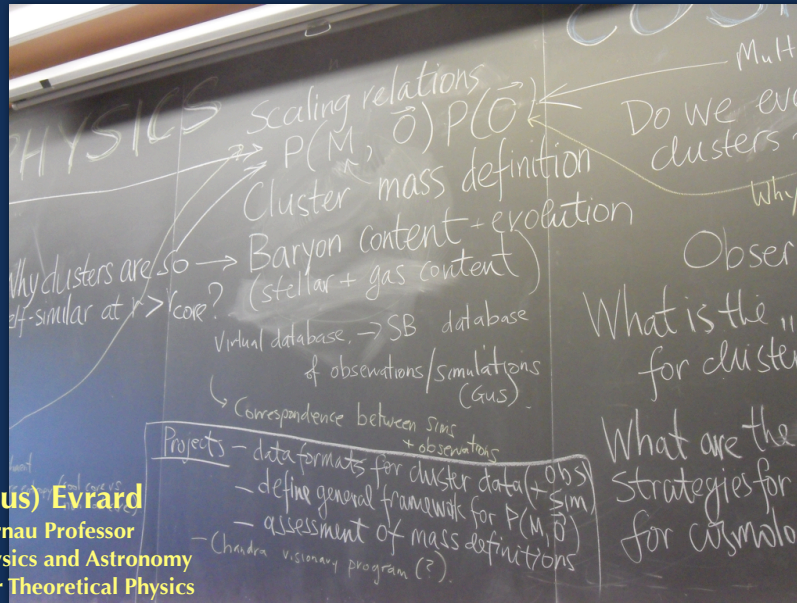 PHYSICS
Why clusters are so →
self-similar at r > rcore?
Scaling relations
P(M, O⃗) P(O⃗)
Cluster mass definition
Baryon content + evolution
(stellar + gas content)
Virtual database, → SB database
of observations/simulations
(Gus).
↳ Correspondence between sims
+ observations
Projects – data formats for cluster data (+ obs
sim)
– define general framework for P(M, O⃗)
– assessment of mass definitions
– Chandra visionary program (?).
COS
Mult
Do we ev
clusters
Why
Obser
What is the "
for cluste
What are the
Strategies for
for cosmolo
us) Evrard
rnau Professor
ysics and Astronomy
r Theoretical Physics